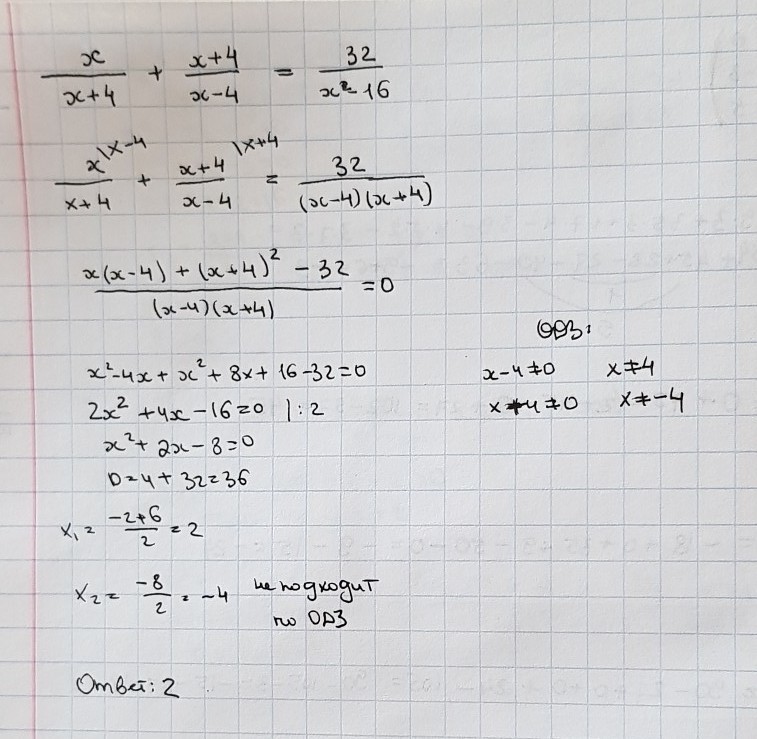 x/(x+4) + (x+4)/(x-4) = 32/(x²-16)
x\x-4/(x+4) + (x+4)\x+4/(x-4) = 32/((x-4)(x+4))
(x(x-4) + (x+4)² - 32)/((x-4)(x+4)) = 0
ОДЗ:
x²-4x + x² + 8x + 16 - 32 = 0
x-4≠0 x≠4
2x² + 4x - 16 = 0 | : 2
x+4≠0 x≠-4
x² + 2x - 8 = 0
D = 4 + 32 = 36
x₁ = (-2+6)/2 = 2
x₂ = -8/2 = -4 не подходит
по ОДЗ
Ответ: 2